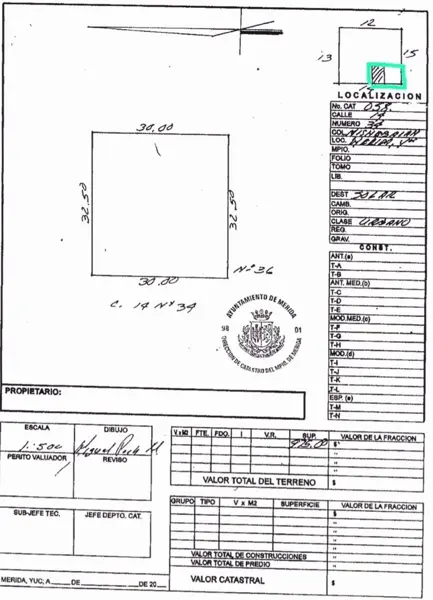 12
13
15
LOCALIZACION
No. CAT 038
CALLE 14
NUMERO 34
COL.
LOC. MERIDA, Yuc
MPIO.
FOLIO
TOMO
LIB.
DEST SOLAR
CAMB.
ORIG.
CLASE URBANO
REG.
GRAV.
CONST.
ANT.(a)
T-A
T-B
ANT. MED.(b)
T-C
T-D
T-E
MOD.MED.(c)
T-F
T-G
T-H
MOD.(d)
T-I
T-J
T-K
T-L
ESP. (e)
T-M
T-N
30.00
32.50
32.50
30.00
Nº 36
C. 14 Nº 34
AYUNTAMIENTO DE MERIDA
98 01
DIRECCION DE CATASTRO DEL MPIO. DE MERIDA
PROPIETARIO:
ESCALA DIBUJO
1:500
PERITO VALUADOR REVISO
SUB-JEFE TEC. JEFE DEPTO. CAT.
MERIDA, YUC; A DE DE 20
V x M2 FTE. FDO. I V.R. SUP. VALOR DE LA FRACCION
975.00 $
"
"
VALOR TOTAL DEL TERRENO $
GRUPO TIPO V x M2 SUPERFICIE VALOR DE LA FRACCION
"
"
"
VALOR TOTAL DE CONSTRUCCIONES "
VALOR TOTAL DE PREDIO "
VALOR CATASTRAL $